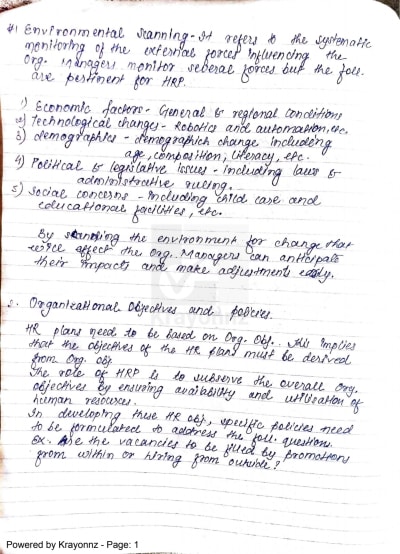 #1 Environmental Scanning - It refers to the systematic
monitoring of the external forces influencing the
Org. Managers monitor several forces but the foll.
are pertinent for HRP.
1) Economic factors - General & regional conditions
2) Technological changes - Robotics and automation, etc.
3) demographics - demographich change including
age, composition, literacy, etc.
4) Political & legislative issues - Including laws &
administrative ruling.
5) Social concerns - including child care and
educational facilities, etc.
By scanning the environment for change that
will affect the org. Managers can anticipate
their impacts and make adjustments early.
2. Organizational Objectives and policies.
HR plans need to be based on Org. Obj. This implies
that the objectives of the HR plans must be derived
from Org. obj
The role of HRP is to subserve the overall org.
objectives by ensuring availability and utilisation of
human resources.
In developing these HR obj, specific policies need
to be formulated to address the foll. questions.
Ex. Are the vacancies to be filled by promotions
from within or hiring from outside?
Powered by Krayonnz - Page: 1